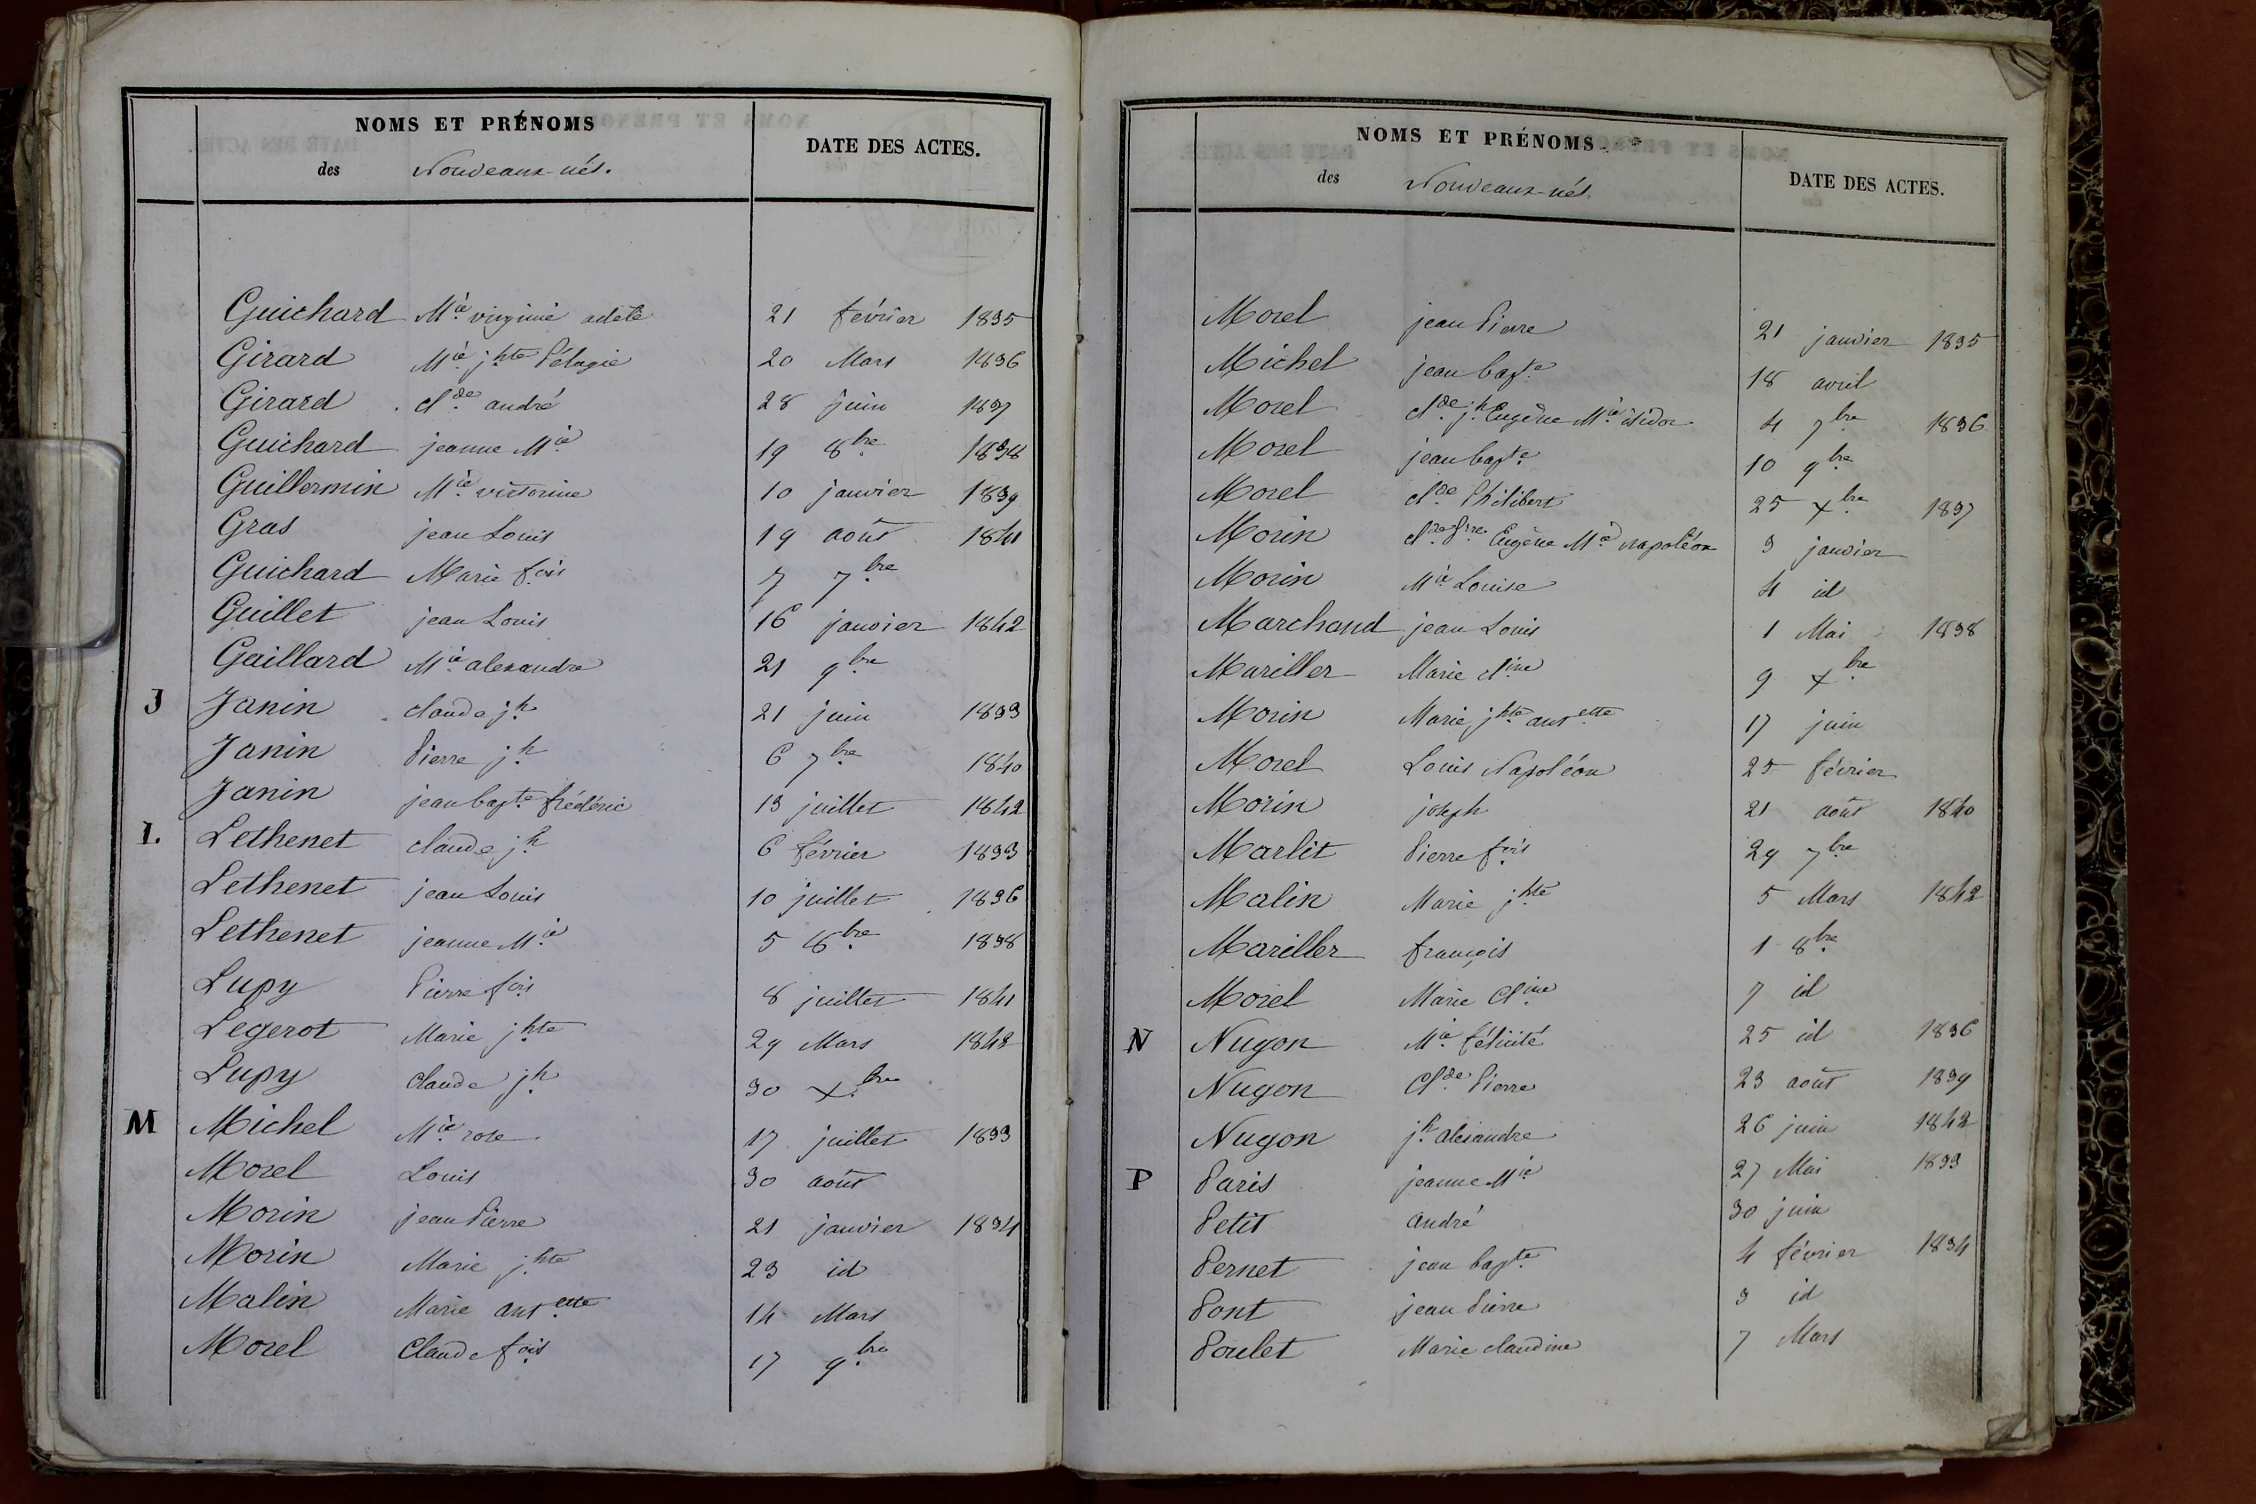 NOMS ET PRÉNOMS
des Nouveaux-nés.
DATE DES ACTES.
Guichard Mie virginie adele 21 février 1835
Girard Mie jhte Pélagie 20 Mars 1836
Girard Clde andré 28 juin 1837
Guichard jeanne Mie 19 8bre 1838
Guillermin Mie victorine 10 janvier 1839
Gras jean Louis 19 août 1841
Guichard Marie fois 7 7bre
Guillet jean Louis 16 janvier 1842
Gaillard Mie alexandre 21 9bre
J Janin claude jh 21 juin 1833
Janin Pierre jh 6 7bre 1840
Janin jean bapte frédéric 13 juillet 1842
L. Lethenet claude jh 6 février 1833
Lethenet jean Louis 10 juillet 1836
Lethenet jeanne Mie 5 8bre 1838
Lupy Pierre fois 8 juillet 1841
Legerot Marie jhte 29 Mars 1842
Lupy Claude jh 30 xbre
M Michel Mie rose 17 juillet 1833
Morel Louis 30 août
Morin jean Pierre 21 janvier 1834
Morin Marie jhte 23 id
Malin Marie antette 14 Mars
Morel Claude fois 17 9bre
NOMS ET PRÉNOMS
des Nouveaux-nés.
DATE DES ACTES.
Morel jean Pierre 21 janvier 1835
Michel jean bapte 18 avril
Morel Clde jh Eugène Mie isidor 4 7bre 1836
Morel jean bapte 10 9bre
Morel Clde Philibert 25 xbre 1837
Morin Eugène Mie napoléon 3 janvier
Morin Mie Louise 4 id
Marchand jean Louis 1 Mai 1838
Mariller Marie Cline 9 xbre
Morin Marie jhte antette 17 juin
Morel Louis Napoléon 25 février
Morin joseph 21 août 1840
Marlit Pierre fois 29 7bre
Malin Marie jhte 5 Mars 1842
Mariller françois 1 8bre
Morel Marie Cline 7 id
N Nugon Mie félicité 25 id 1836
Nugon Clde Pierre 23 août 1839
Nugon jh alexandre 26 juin 1842
P Paris jeanne Mie 27 Mai 1833
Petit andré 30 juin
Pernet jean bapte 4 février 1834
Pont jean Pierre 3 id
Poulet Marie claudine 7 Mars